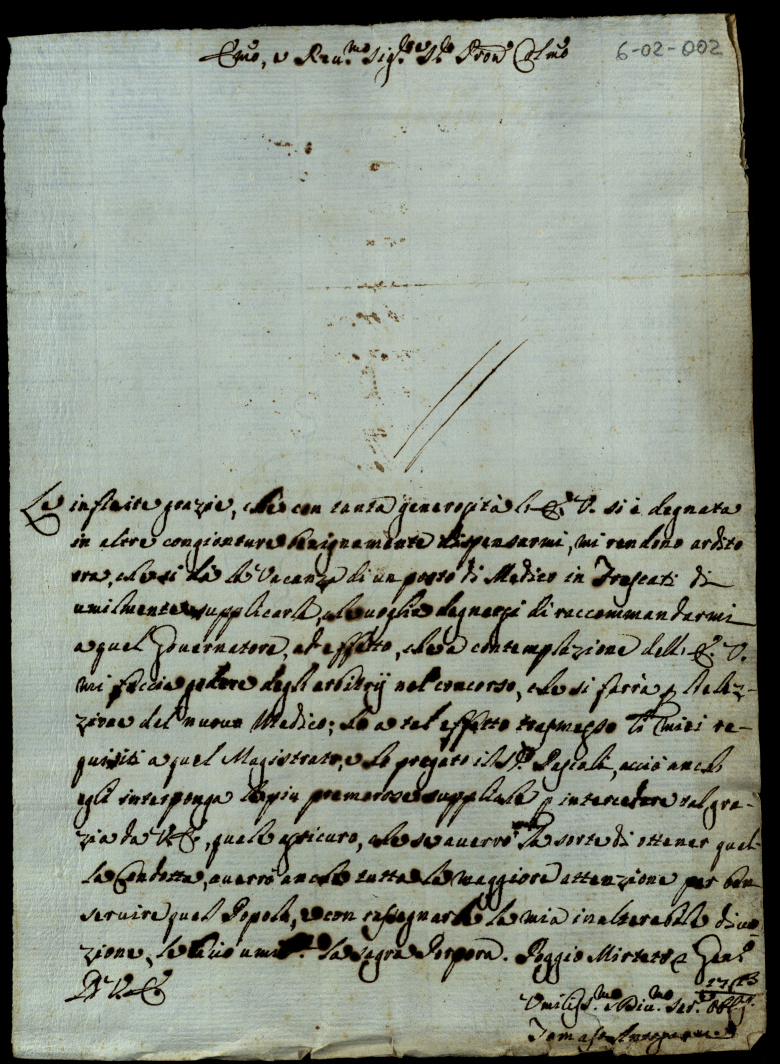 Em̃o, e Reu.mo Sig.re Sig.re Pron̄ Col.mo
6-02-002
Le infinite grazie, che con tanta generosità l'E. V. si è degnata
in altre congionture benignamente dispensarmi, mi rendono ardito
ora, che si dà la Vacanza di un posto di Medico in Frascati di
umilmente supplicarla, che voglia degnarsi di raccommandarmi
a quel Gouernatore, ad effetto, che a contemplazione dell' E. V.
mi faccia godere degli arbitrij nel concorso, che si farà p la lez-
zione del nuouo Medico; ho a tal effetto trasmesso li miei re-
quisiti a quel Magistrato, e ho pregato il S.r Pascali, acciò anch'
egli interponga le più premorose suppliche p intercedere tal gra-
zia da V. E., quale assicuro, che se auerrò la sorte di ottener quel-
la Condotta, auerrò anche tutta la maggiore attenzione per ben
seruire quel Popolo, e con rassegnarle la mia inalterabile diuo-
zione, le bacio umil.te la Sagra Porpora. Poggio Mirteto
D. V. E.
Umiliss.mo e Diu.mo Ser.re obb.mo
Tomaso